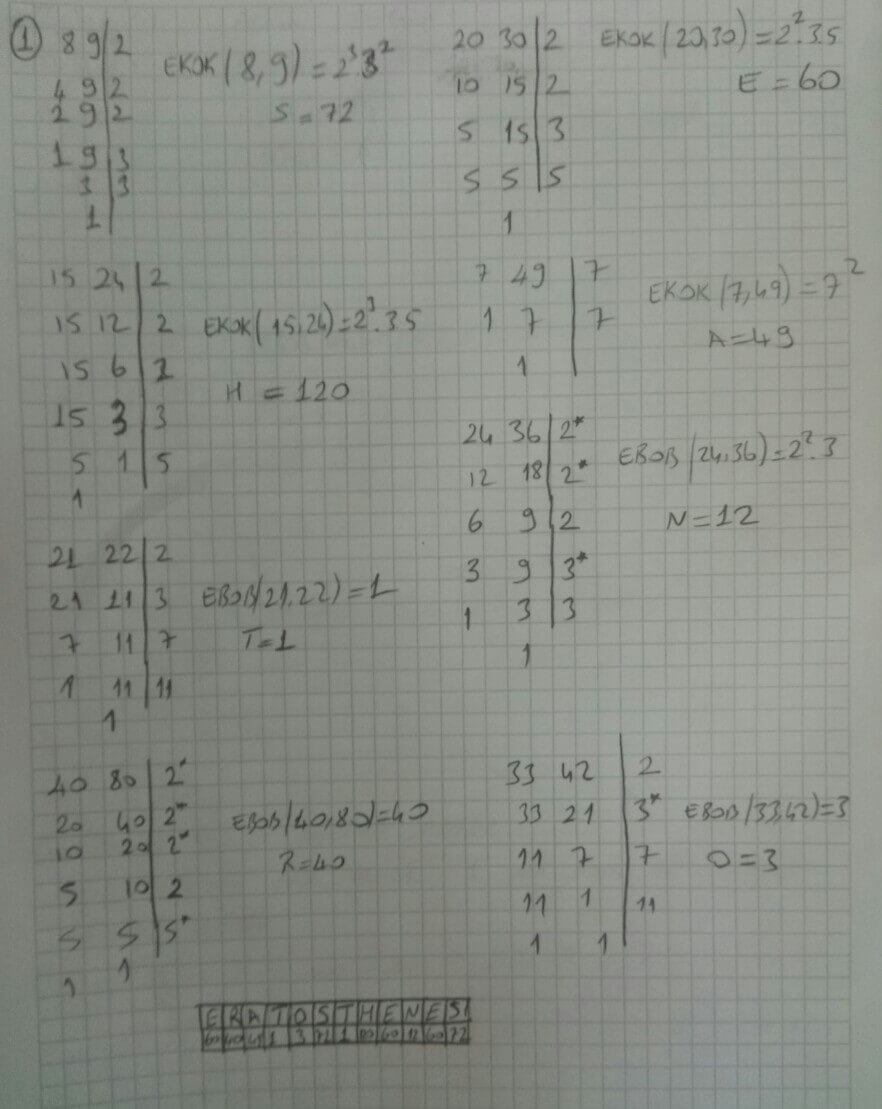 1
8 9 | 2
4 9 | 2
2 9 | 2
1 9 | 3
3 | 3
1
EKOK(8,9)=2³3²
S=72
20 30 | 2
10 15 | 2
5 15 | 3
5 5 | 5
1
EKOK(20,30)=2².3.5
E=60
15 24 | 2
15 12 | 2
15 6 | 2
15 3 | 3
5 1 | 5
1
EKOK(15,24)=2³.3 5
H=120
7 49 | 7
1 7 | 7
1
EKOK(7,49)=7²
A=49
24 36 | 2*
12 18 | 2*
6 9 | 2
3 9 | 3*
1 3 | 3
1
EBOB(24,36)=2².3
N=12
21 22 | 2
21 11 | 3
7 11 | 7
1 11 | 11
1
EBOB(21,22)=1
T=1
40 80 | 2*
20 40 | 2*
10 20 | 2*
5 10 | 2
5 5 | 5*
1 1
EBOB(40,80)=40
R=40
33 42 | 2
33 21 | 3*
11 7 | 7
11 1 | 11
1 1
EBOB(33,42)=3
O=3
E R A T O S T H E N E S
60 40 49 1 3 72 1 120 60 12 60 72